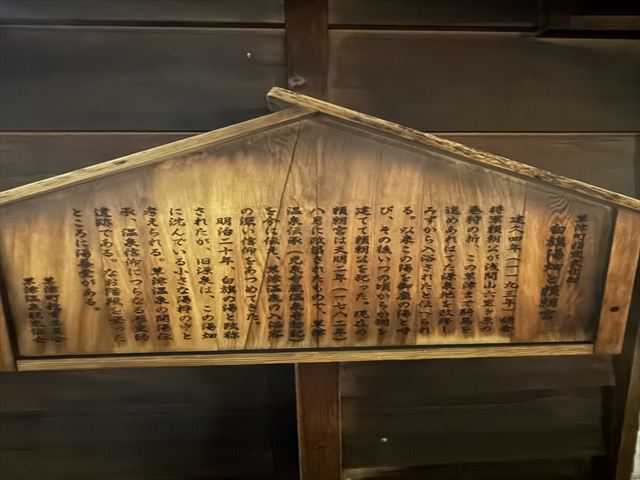 草津町指定史跡
白旗湯畑と頼朝宮
建久四年（一一九三年）鎌倉
将軍頼朝公が浅間山六里ヶ原の
巻狩の折、この草津まで駒を
進めあれはてた源泉地を改修し
みずから入浴されたと伝へられ
る。以来この湯を御座の湯と呼
び、その後いつの頃からか祠を
建てて頼朝公を祀った。現在の
頼朝宮は天明二年（一七八二年）
八月に改築されたもので、草津
温泉伝承
を今に伝え、草津温泉の入浴客
の深い信仰をあつめてきた。
明治二十年、白旗の湯と改称
されたが、旧源泉は、この湯畑
に沈んでいる小さな湯枠の中と
考えられる。草津温泉の開湯伝
承、温泉信仰につらなる歴史的
遺跡である。なお
ところに湯善堂がある。
草津町教育委員会
草津温泉観光協会